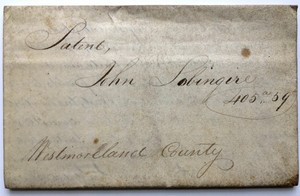 Patent,
John Sobingire
405 59
Westmorland County